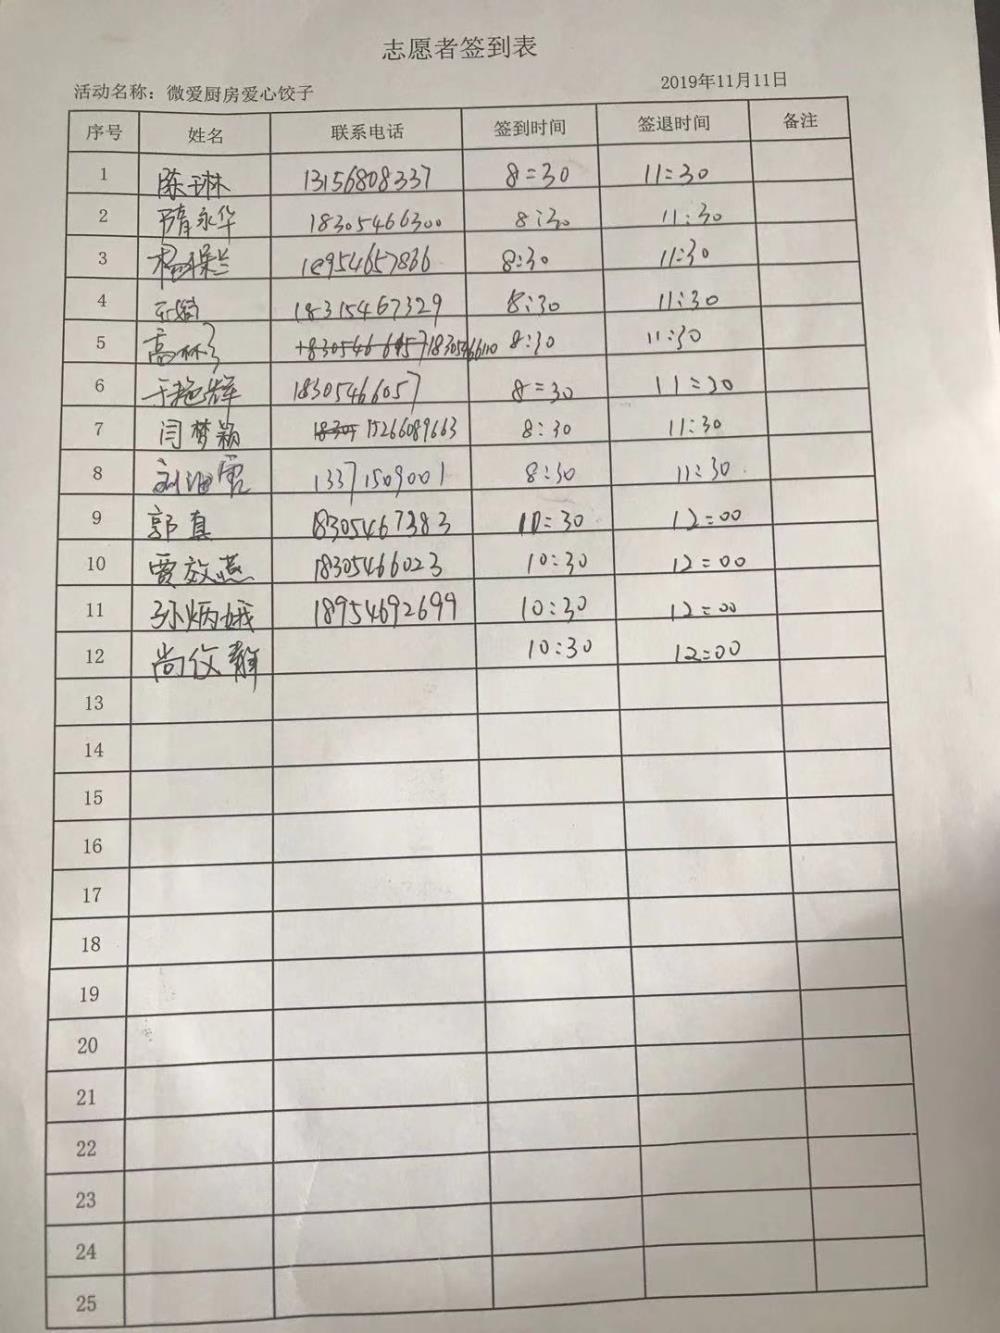 志愿者签到表
活动名称：微爱厨房爱心饺子 2019年11月11日
序号 姓名 联系电话 签到时间 签退时间 备注
1 陈琳 13156808337 8=30 11:30
2 隋永华 18305466300 8:30 11:30
3 18954657866 8:30 11:30
4 18315467329 8:30 11:30
5 高 18305466110 8:30 11:30
6 于艳辉 18305466057 8=30 11=30
7 闫梦颖 15266089663 8:30 11:30
8 刘 13371509001 8:30 11:30
9 郭真 18305467383 10=30 12=00
10 贾效燕 18305466023 10:30 12=00
11 孙炳娥 18954692699 10:30 12=00
12 尚俊静 10:30 12=00
13
14
15
16
17
18
19
20
21
22
23
24
25